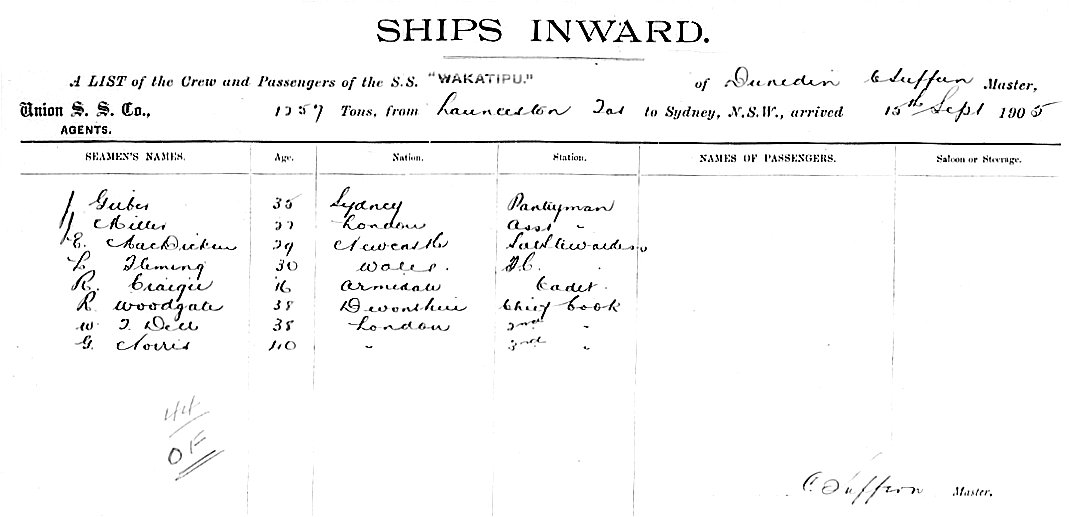 SHIPS INWARD.
A LIST of the Crew and Passengers of the S.S. "WAKATIPU." of Dunedin C Master,
Union S. S. Co., Tons, from Launceston Tas to Sydney, N.S.W., arrived 15th Sept 1905
AGENTS.
SEAMEN'S NAMES. Age. Nation. Station. NAMES OF PASSENGERS. Saloon or Steerage.
35 Sydney Pantryman
Miller London Asst "
E. 29 Newcastle
L. Fleming 30 Wales
R. 16 Armidale Cadet
R. Woodgate 38 Devonshire Chief Cook
W. T. Dell 38 London 2nd "
G. Norris 40 " "
44
OF
C. Master.